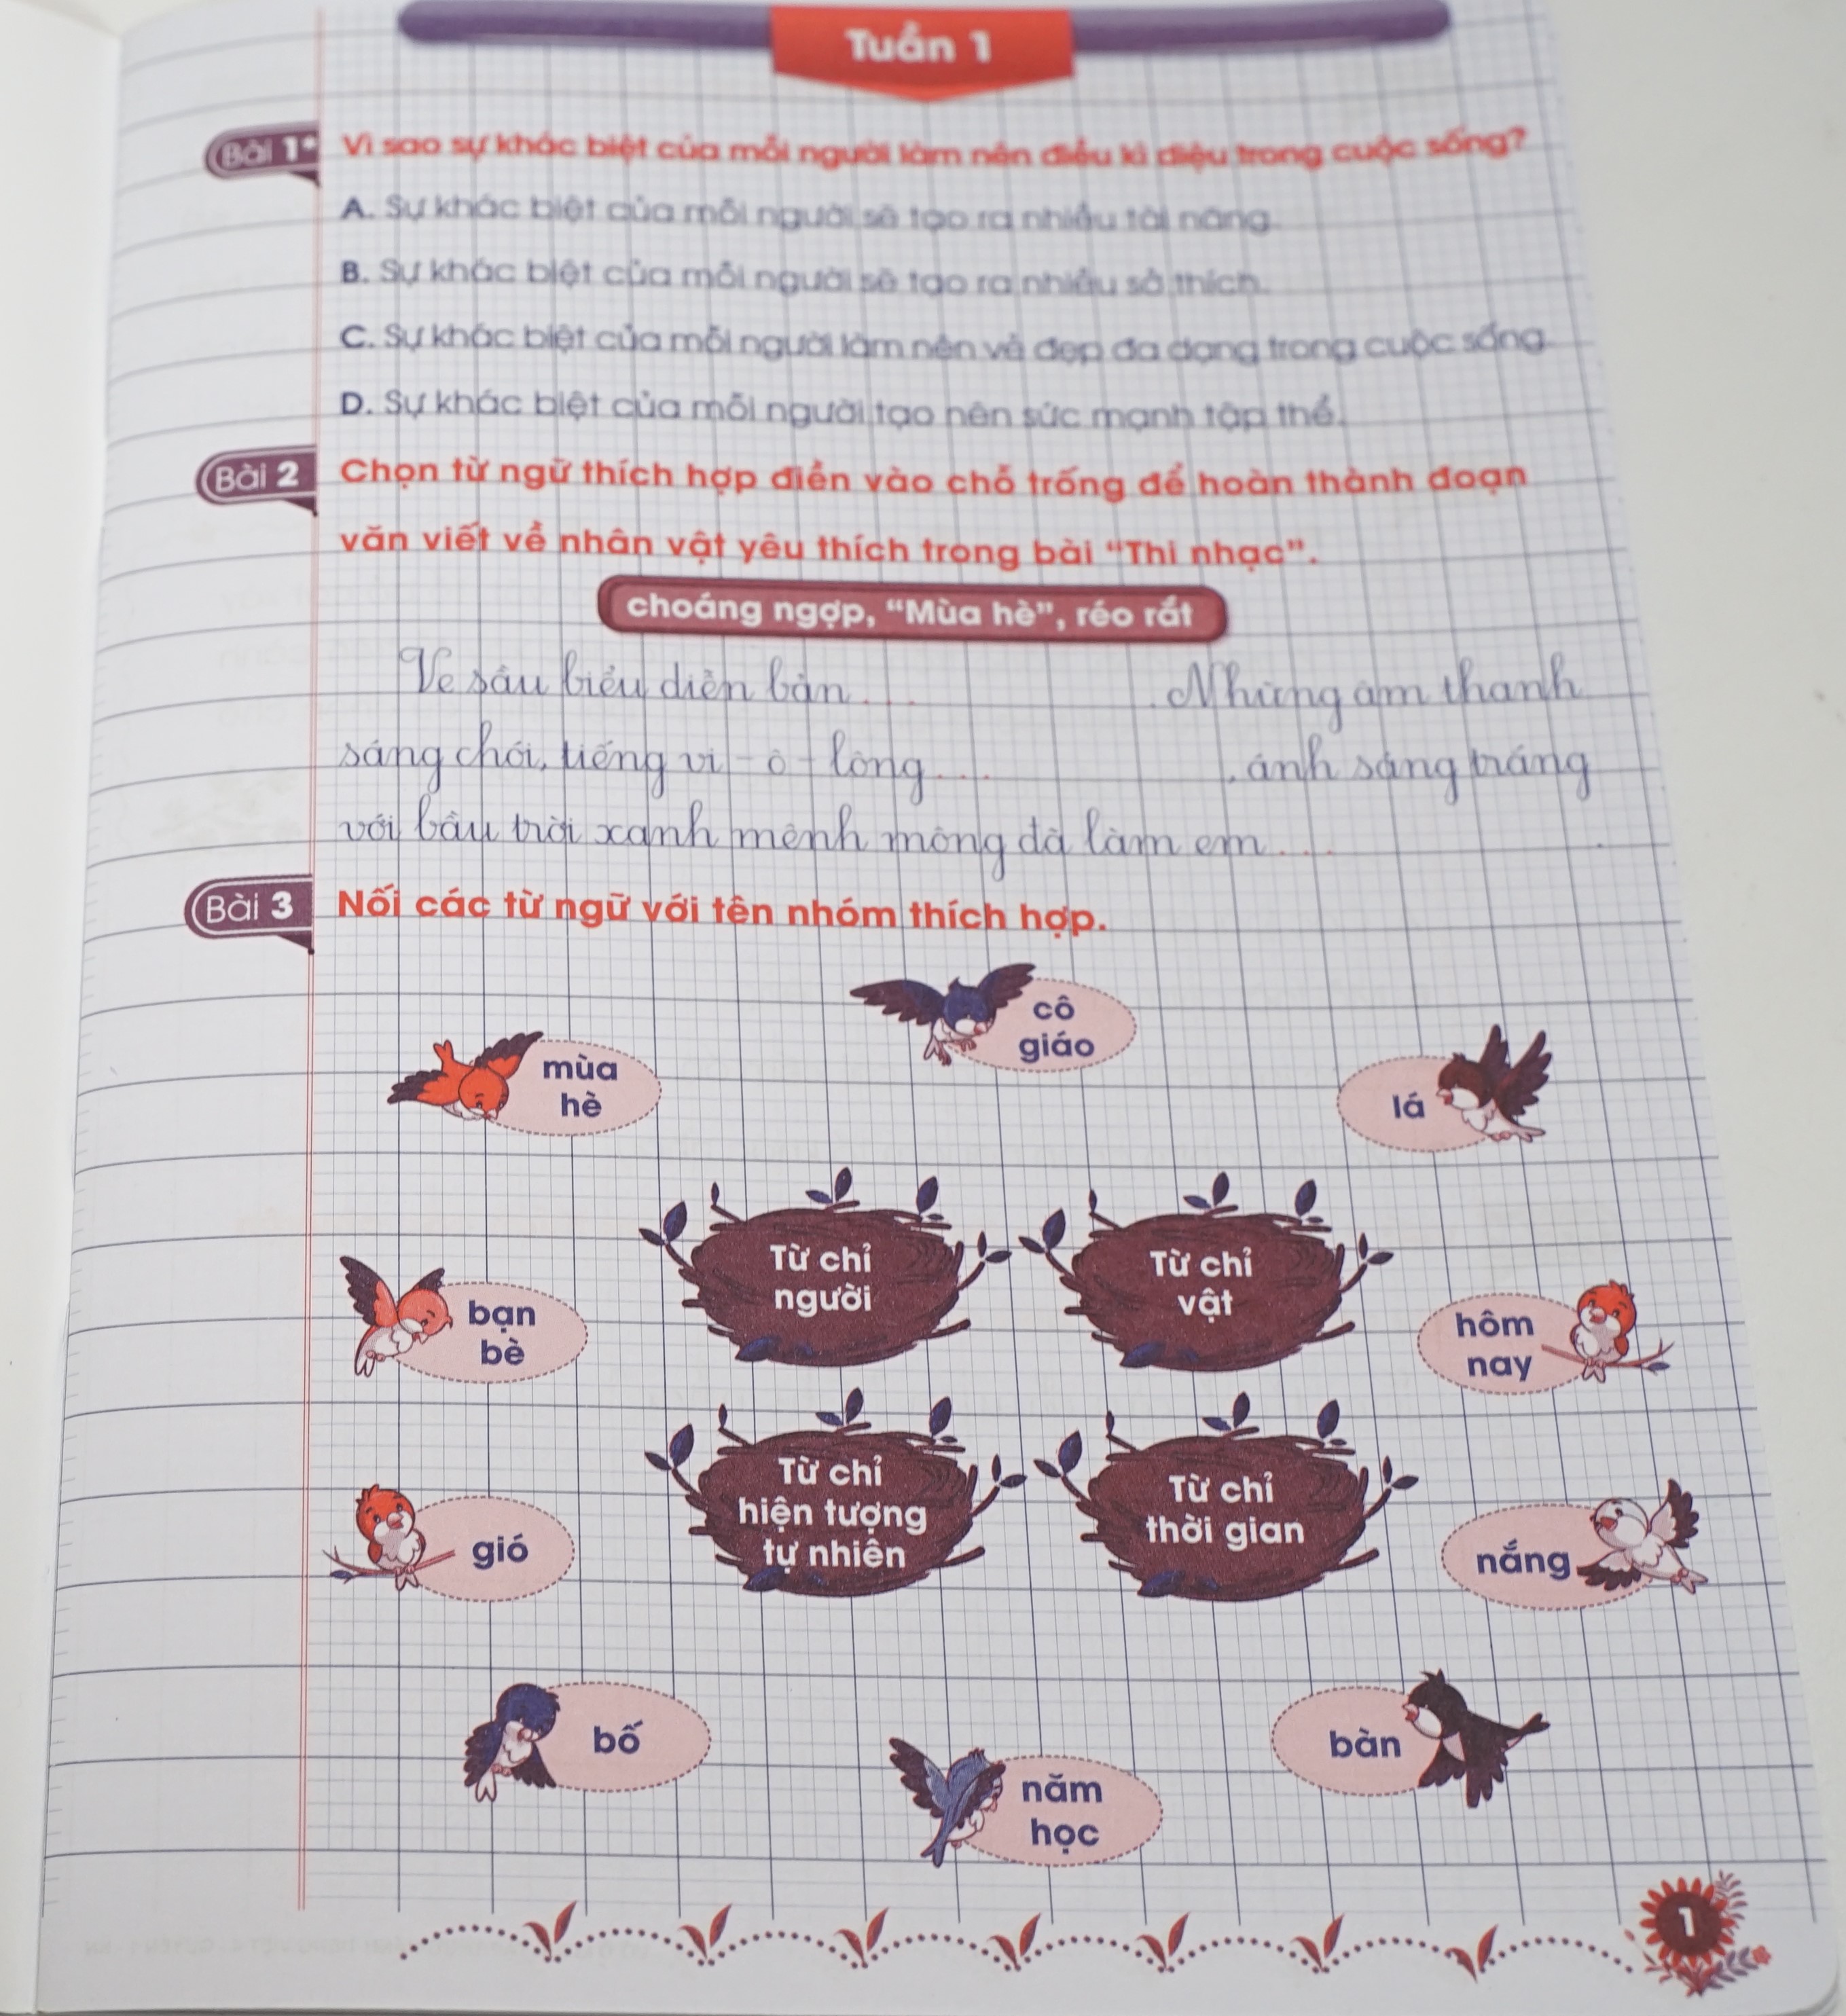 Tuần 1
Bài 1* Vì sao sự khác biệt của mỗi người làm nên điều kì diệu trong cuộc sống?
A. Sự khác biệt của mỗi người sẽ tạo ra nhiều tài năng.
B. Sự khác biệt của mỗi người sẽ tạo ra nhiều sở thích.
C. Sự khác biệt của mỗi người làm nên vẻ đẹp đa dạng trong cuộc sống.
D. Sự khác biệt của mỗi người tạo nên sức mạnh tập thể.
Bài 2 Chọn từ ngữ thích hợp điền vào chỗ trống để hoàn thành đoạn
văn viết về nhân vật yêu thích trong bài “Thi nhạc”.
choáng ngợp, “Mùa hè”, réo rắt
Ve sầu biểu diễn bản ... . Những âm thanh
sáng chói, tiếng vi - ô - lông ... , ánh sáng trắng
với bầu trời xanh mênh mông đã làm em ... .
Bài 3 Nối các từ ngữ với tên nhóm thích hợp.
cô
giáo
mùa
hè
lá
Từ chỉ
người
Từ chỉ
vật
bạn
bè
hôm
nay
Từ chỉ
hiện tượng
tự nhiên
Từ chỉ
thời gian
gió
nắng
bố
bàn
năm
học
1